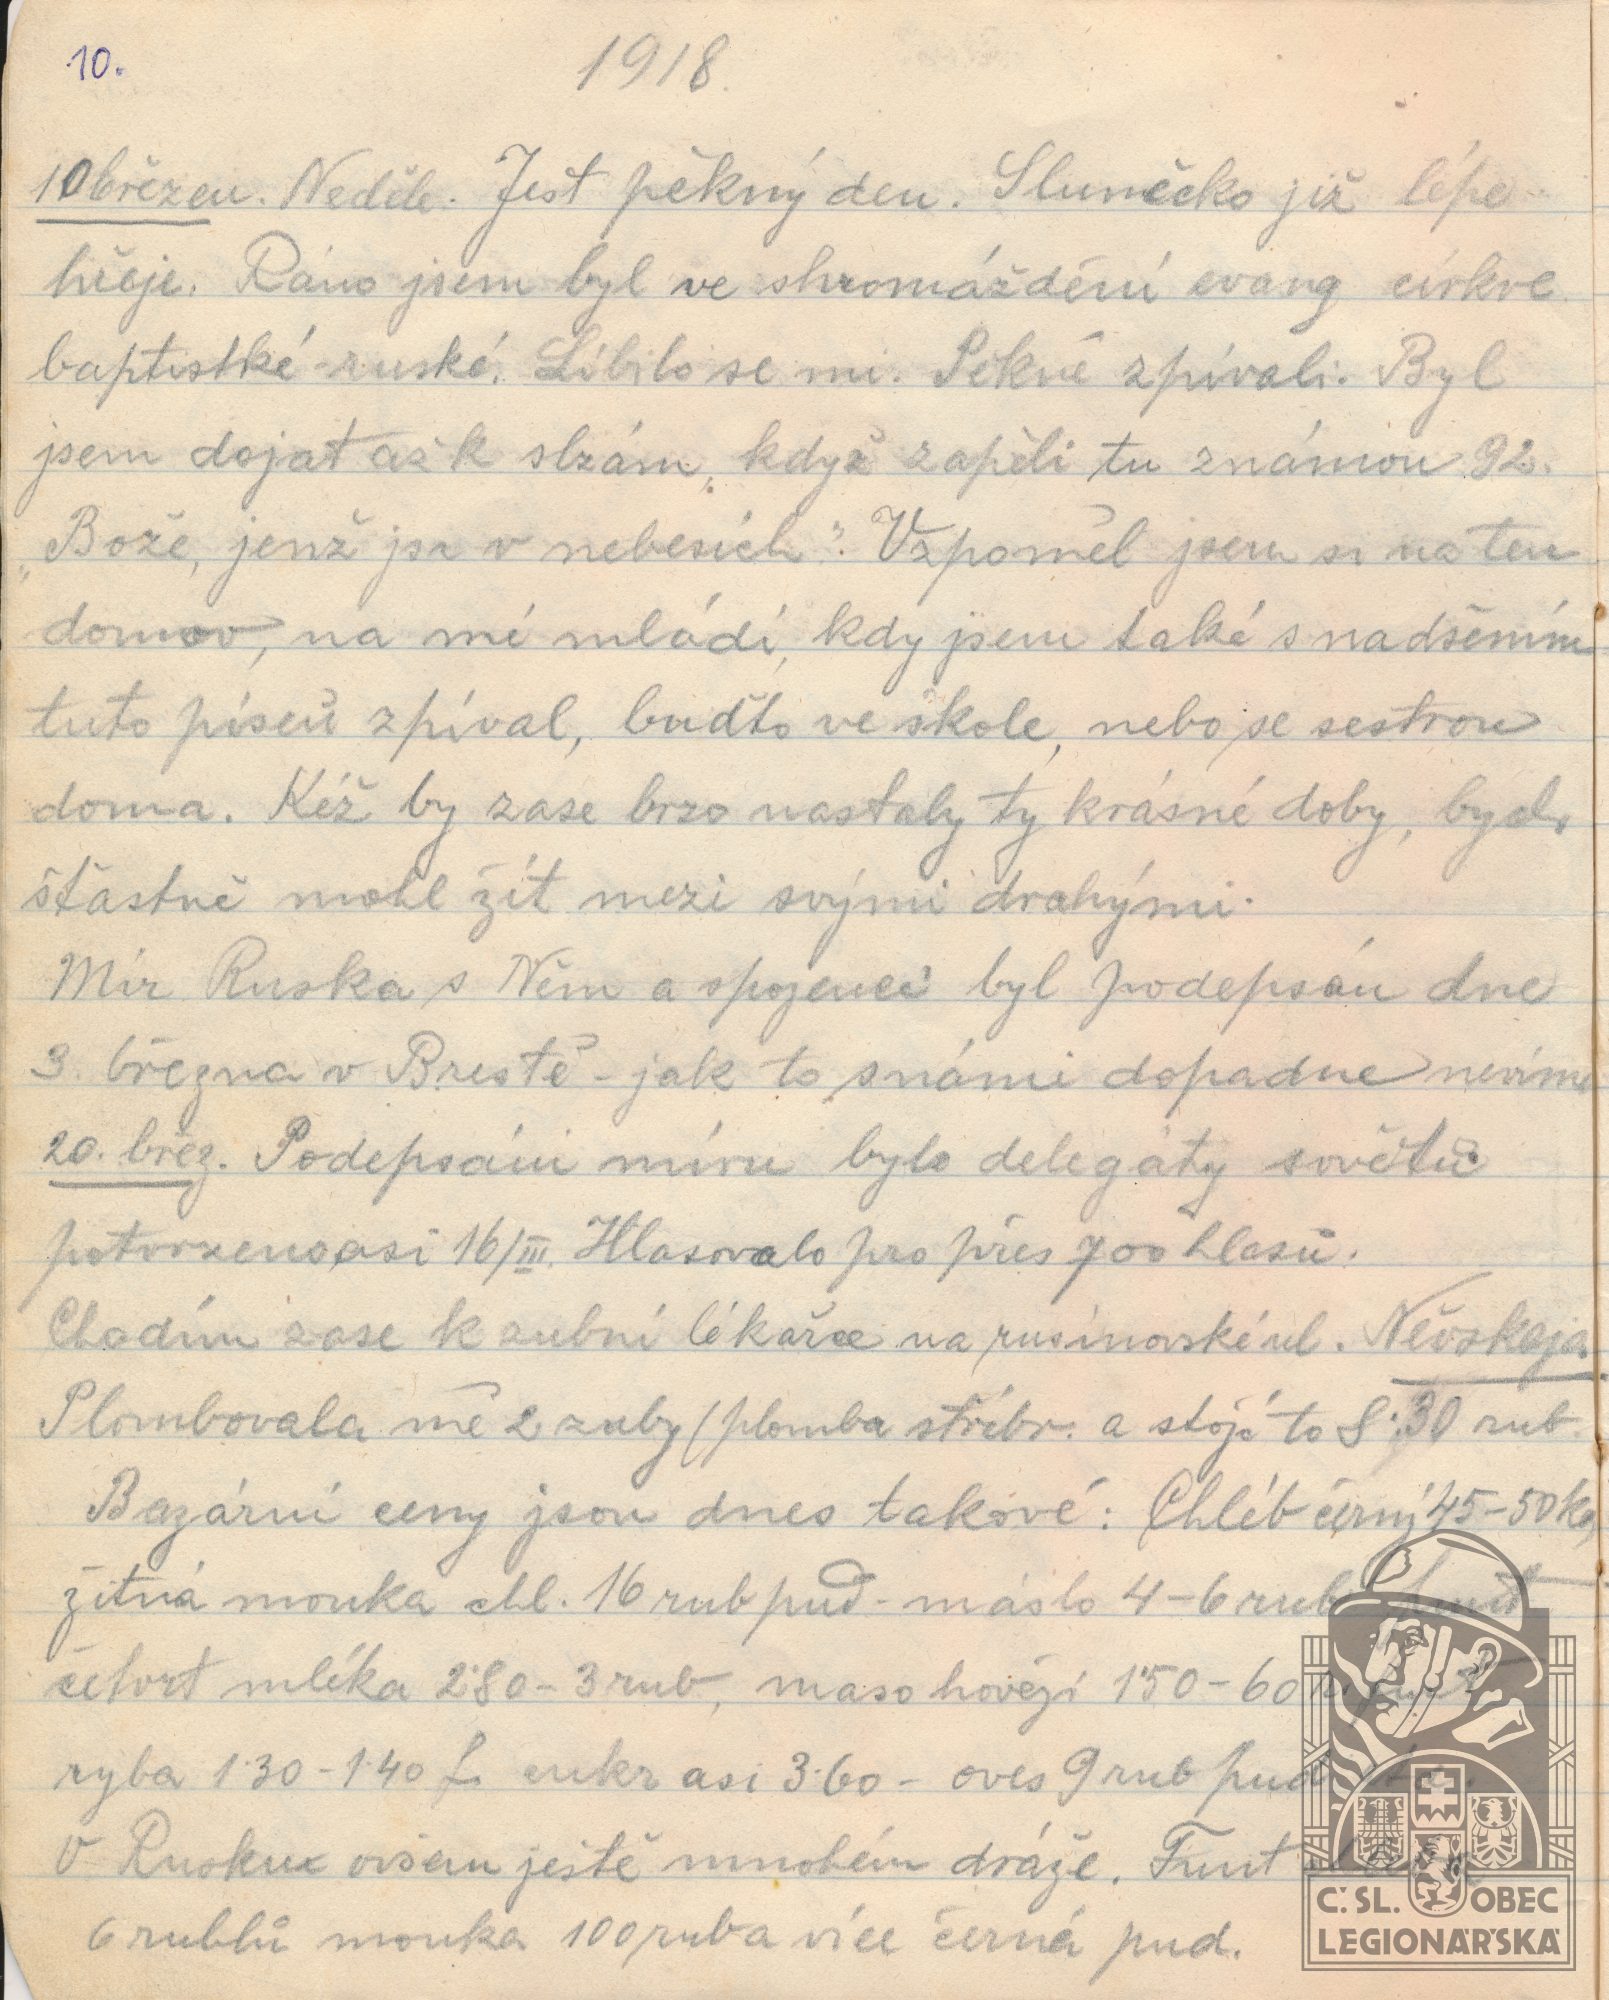 10.
1918.
10 březen. Neděle. Jest pěkný den. Slunečko již lépe
hřeje. Ráno jsem byl ve shromáždění evang církve
baptistké-ruské. Líbilo se mi. Pěkně zpívali. Byl
jsem dojat až k slzám, když zapěli tu známou 92.
„Bože, jenž jsi v nebesích". Vzpoměl jsem si na ten
domov, na mé mládí, kdy jsem také s nadšením
tuto píseň zpíval, buďto ve škole, nebo se sestrou
doma. Kéž by zase brzo nastaly ty krásné doby, bych
šťastně mohl žít mezi svými drahými.
Mír Ruska s Něm a spojenci byl podepsán dne
3. března v Brestě - jak to snámi dopadne nevíme
20. břez. Podepsání míru bylo delegáty sovětů
potvrzeno asi 16/III. Hlasovalo pro přes 700 hlasů.
Chodím zase k zubní lékařce na rusínovské ul. Něvskaja.
Plombovala mě 2 zuby (plomba stříbr. a stojí to 8:30 rub.
Bazární ceny jsou dnes takové: Chléb černý 45-50 ko
žitná mouka chl. 16 rub pud - máslo 4-6 rub funt
čtvrt mléka 2.80 - 3 rub, maso hovězí 1.50 - 60 funt
ryba 1.30 - 1.40 f. cukr asi 3.60 - oves 9 rub pud
V Rusku ovšem ještě mnohém dráže. Funt
6 rublů mouka 100 rub a více černá pud.
Č.SL. OBEC
LEGIONÁŘSKÁ